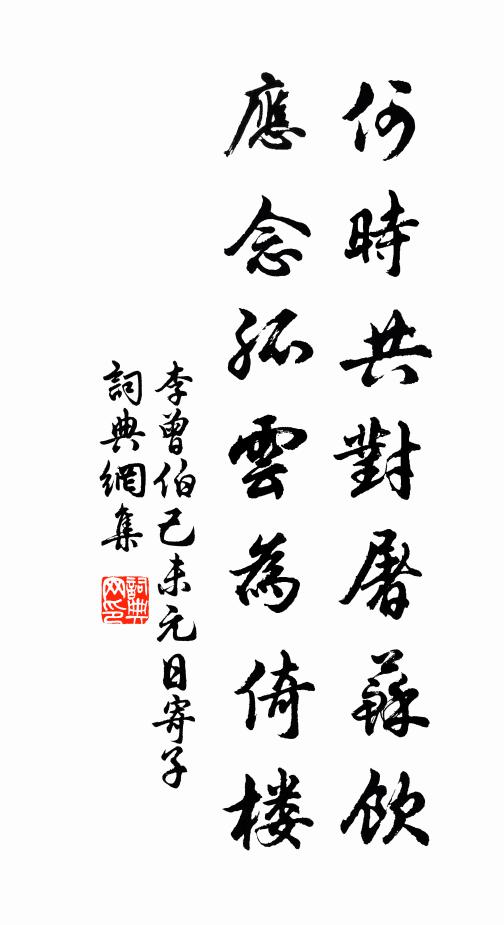 何時共對屠蘇飲
應念孤雲為倚楼
李曾伯己未元日寄子
詞典網集
詞典
网印